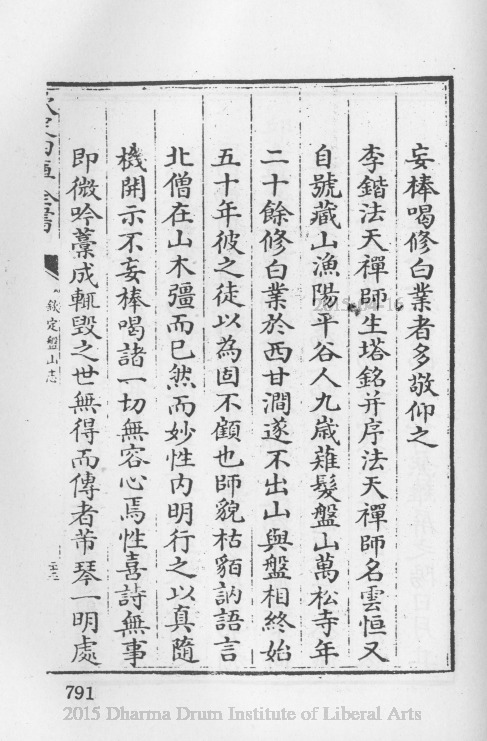 妄棒喝修白業者多敬仰之
李鍇法天禪師生塔銘并序法天禪師名雲恒又
自號藏山漁陽平谷人九歲薙髮盤山萬松寺年
二十餘修白業於西甘澗遂不出山與盤相終始
五十年彼之徒以為固不顧也師貌枯貊訥語言
北僧在山木彊而已然而妙性内明行之以真隨
機開示不妄棒喝諸一切無容心焉性喜詩無事
即微吟藁成輒毀之世無得而傳者芾琴一明處
欽定盤山志
791
2015 Dharma Drum Institute of Liberal Arts